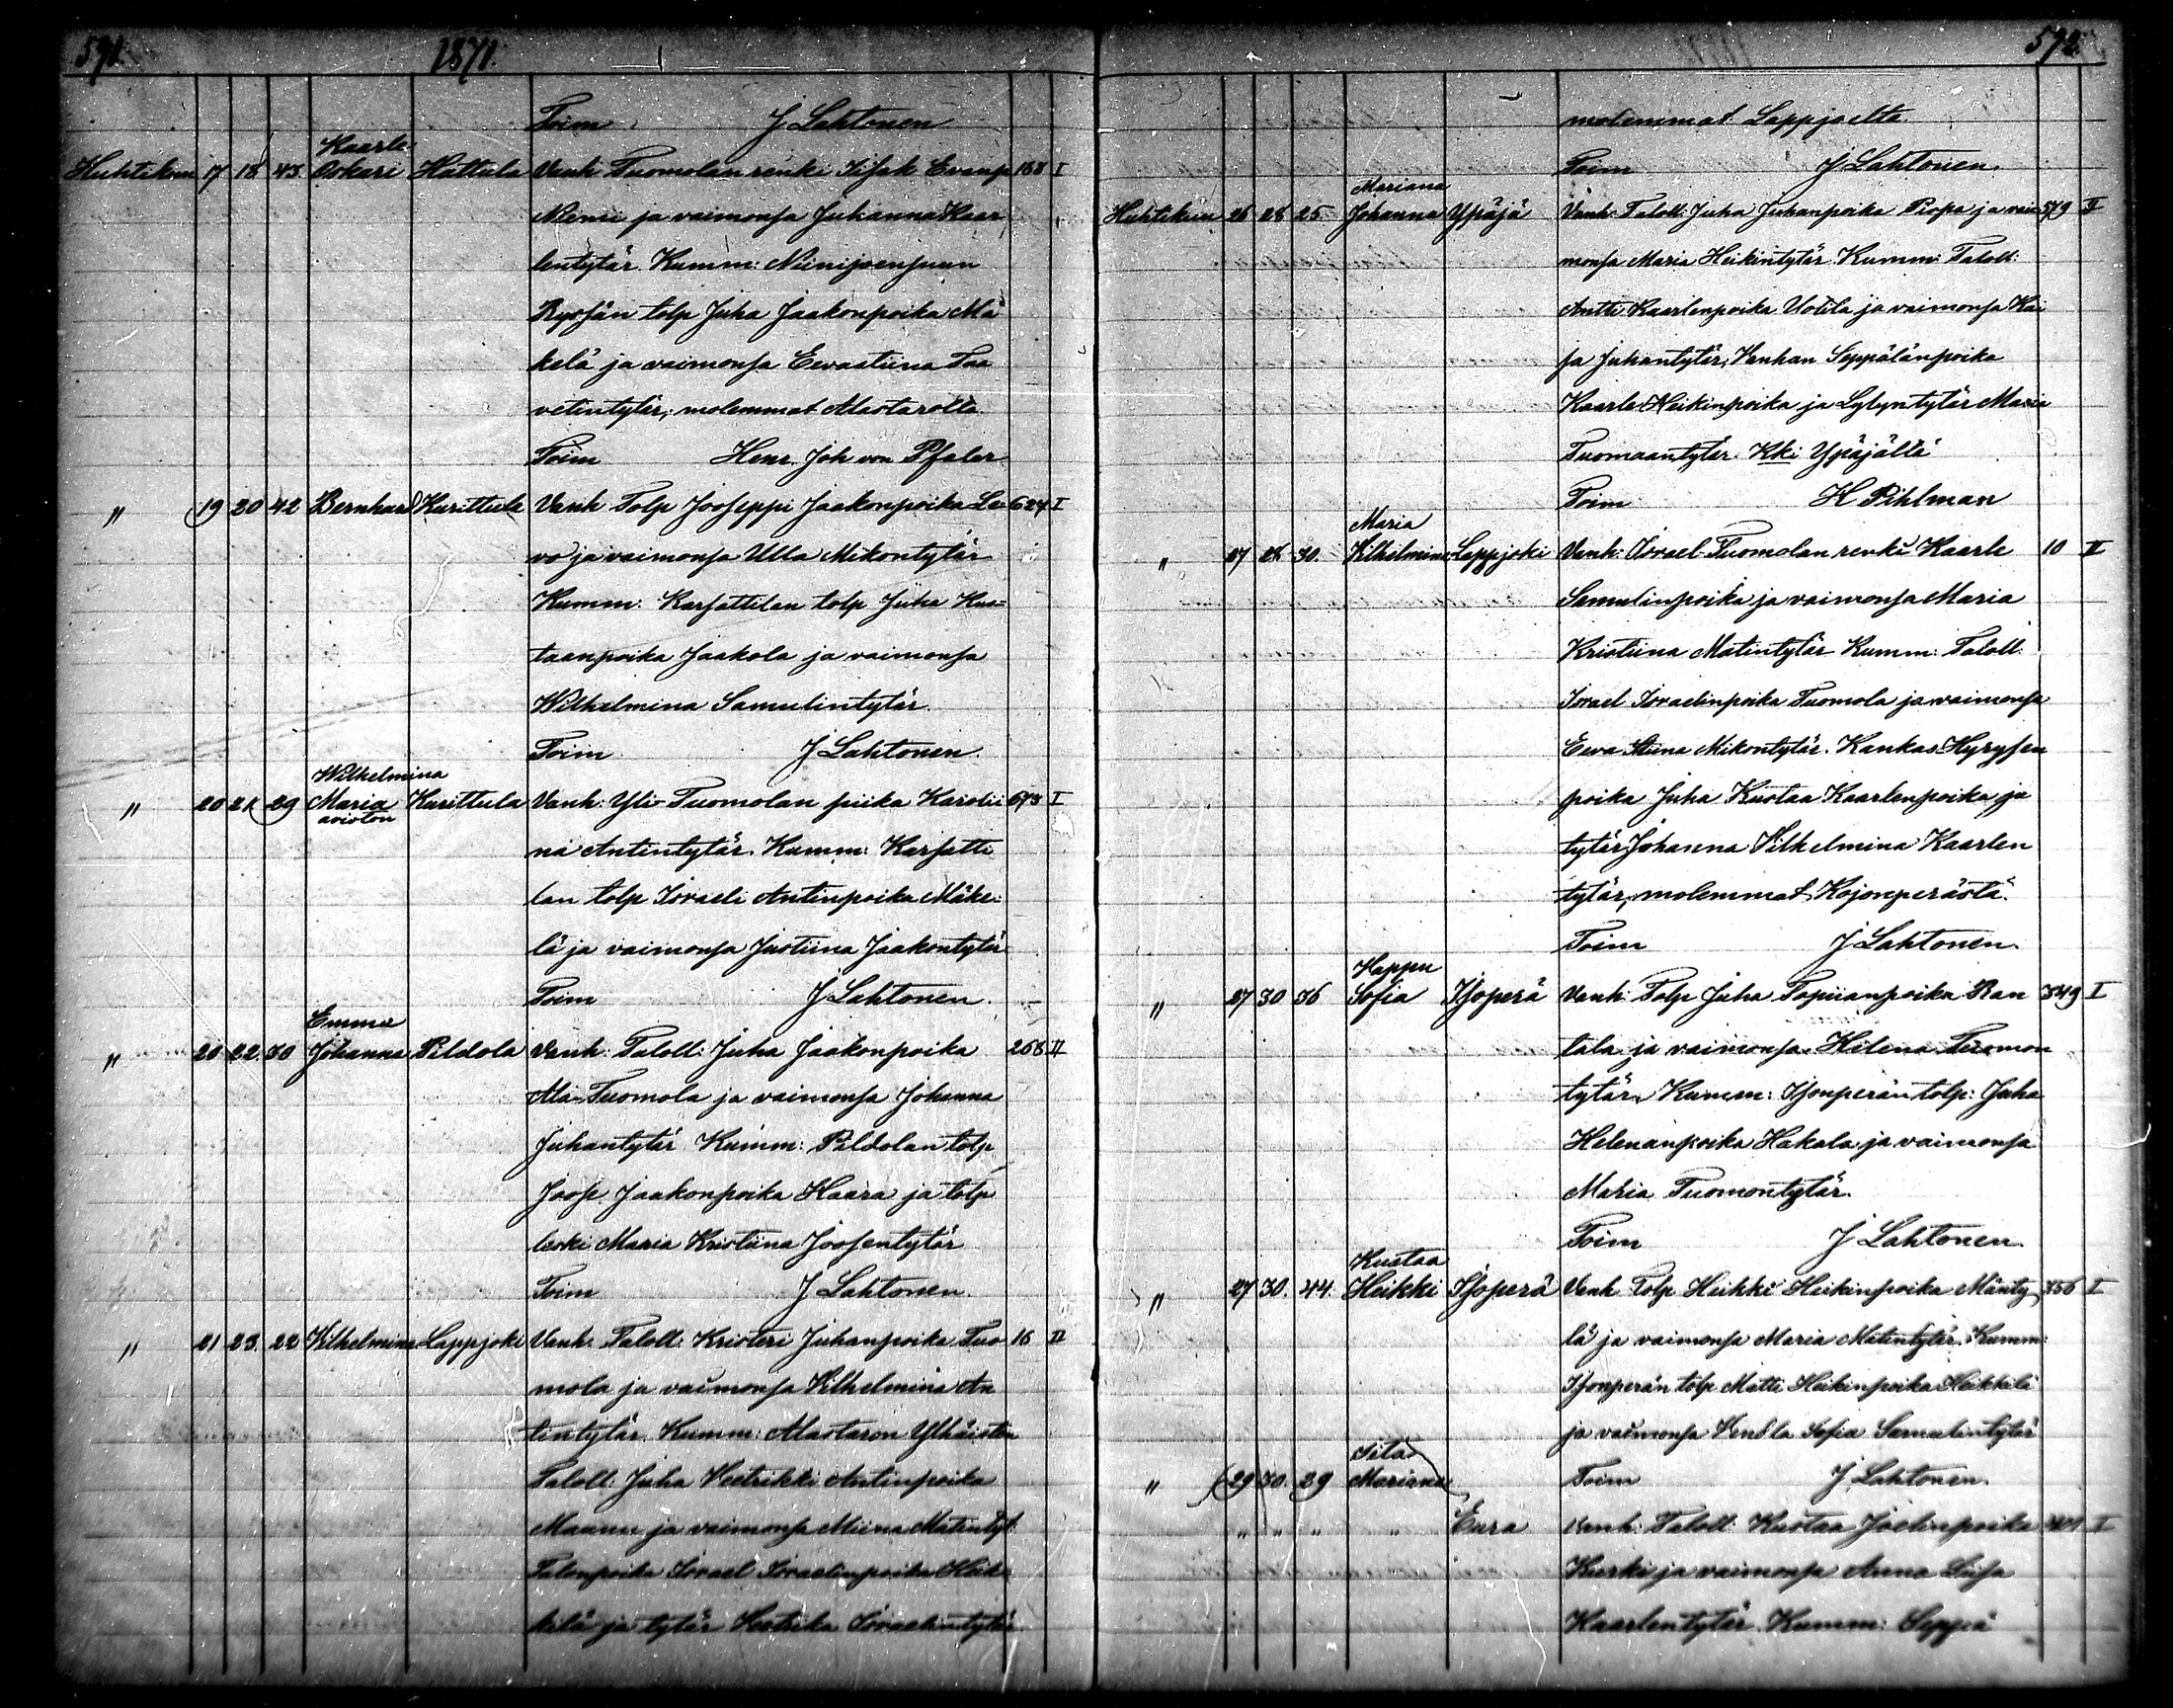 591. 1871.
Toim J Lahtonen
Kaarle
Huhtikuu 17 18 43. Oskari Hattula Vanh Tuomolan renki Iisak Evanp 188 I
Nlemi ja vaimonsa Juhanna Kaar
lentytär. Kumm: Niinijoensuun
Ryssän tolp Juha Jaakonpoika Mä
kelä ja vaimonsa Eevastiina Taa
vetintytär; molemmat Alastarolta
Toim Henr. Joh von Pfaler
" 19 20 42 Bernhard Kurittula Vanh Tolp Jooseppi Jaakonpoika Le 624 I
vo ja vaimonsa Ulla Mikontytär
Kumm: Karsattilan tolp Juha Kus=
taanpoika Jaakola ja vaimonsa
Wilhelmina Samulintytär.
Toim J Lahtonen.
Wilhelmina
" 20 21 29 Maria Kurittula Vanh: Yli-Tuomolan piika Karolii 673 I
avioton
na Antintytär. Kumm: Karsatti
lan tolp Israeli Antinpoika Mäke-
lä ja vaimonsa Justiina Jaakontytär
Toim J Lahtonen.
Emma
" 20 22. 30 Johanna Pildola Vanh: Taloll: Juha Jaakonpoika 268 II
Ala-Tuomola ja vaimonsa Johanna
Juhantytär Kumm: Pildolan tolp
Joose Jaakonpoika Haara ja tolp
leski Maria Kristiina Joosentytär
Toim J Lahtonen.
" 21 23. 22 Vilhelmina Lappjoki Vanh. Taloll. Kristeri Juhanpoika Tuo 16 II
mola ja vaimonsa Vilhelmina An
tintytär. Kumm: Alastaron Ylhäisten
Taloll: Juha Heetrikki Antinpoika
Maanu ja vaimonsa Miina Matintyt.
Talonpoika Israel Israelinpoika Heik-
kilä ja tytär Heetrika Israelintytär
592.
molemmat Lappjoelta.
Toim J Lahtonen.
Mariana
Huhtikuu 26 28 25. Johanna Ypäjä Vanh: Taloll: Juha Juhanpoika Piopa ja vai 579 II
monsa Maria Heikintytär. Kumm: Taloll:
Antti Kaarlenpoika Uotila ja vaimonsa Kai
sa Juhantytär, Vanhan Seppälänpoika
Kaarle Heikinpoika ja Lylyntytär Maria
Tuomaantytär Kki Ypäjältä
Toim H Pihlman
Maria
" 27 28 30. Vilhelmina Lappjoki Vanh: Israel-Tuomolan renki Kaarle 10 II
Samulinpoika ja vaimonsa Maria
Kristiina Matintytär Kumm: Taloll.
Israel Israelinpoika Tuomola ja vaimonsa
Eeva Stiina Mikontytär. Kankas-Hyrysen
poika Juha Kustaa Kaarlenpoika ja
tytär Johanna Vilhelmina Kaarlen
tytär, molemmat Kojonperästä.
Toim J Lahtonen.
Happu
" 27 30 36 Sofia Isoperä Vanh: Tolp Juha Tapiianpoika Ran 349 I
tala ja vaimonsa Helena Tuomon
tytär. Kumm: Isonperän tolp: Juha
Helenanpoika Hakala ja vaimonsa
Maria Tuomontytär.
Toim J Lahtonen.
Kustaa
" 27 30. 44. Heikki Isoperä Vanh Tolp Heikki Heikinpoika Mänty 356 I
lä ja vaimonsa Maria Matintytär. Kumm:
Isonperän tolp Matti Heikinpoika Heikkilä
ja vaimonsa Vendla Sofia Samulintytär
Iita
" 29 30. 29 Mariana Toim J Lahtonen.
" " " " Eura Vanh: Taloll: Kustaa Joelinpoika 401 I
Kurki ja vaimonsa Anna Liisa
Kaarlentytär. Kumm: Seppä